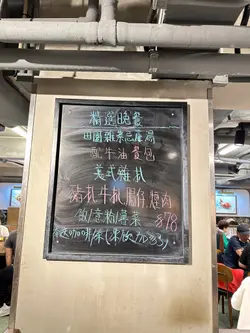 精選晚餐
田園雞來忌廉湯
配牛油餐包
美式雞扒
豬扒牛扒 腸仔 煙肉
飯/意粉/薯菜 $78
送咖啡/茶(凍飲加$3)